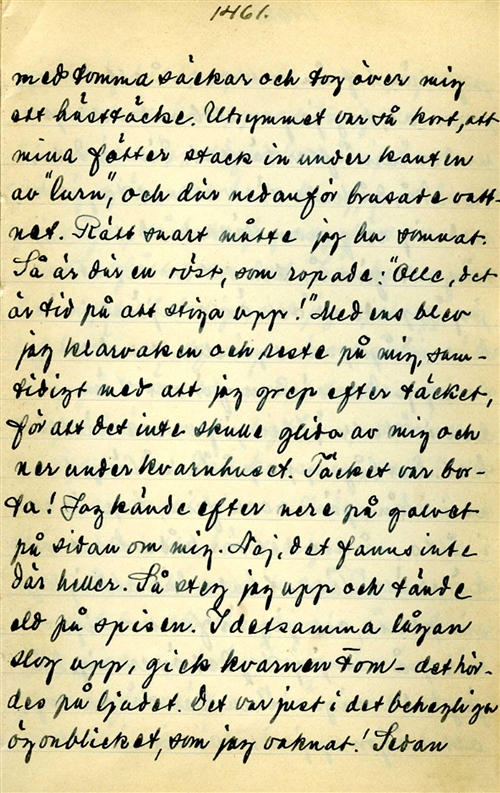 1461.
med tomma säckar och tog över mig
ett hästtäcke. Utrymmet var så kort, att
mina fötter stack in under kanten
av "lurn", och där nedanför brusade vatt-
net. Rätt snart måtte jag ha somnat.
Så är där en röst, som ropade: "Olle, det
är tid på att stiga upp!" Med ens blev
jag klarvaken och reste på mig, sam-
tidigt med att jag grep efter täcket,
för att det inte skulle glida av mig och
ner under kvarnhuset. Täcket var bor-
ta! Jag kände efter nere på golvet
på sidan om mig. Nej, det fanns inte
där heller. Så steg jag upp och tände
eld på spisen. I detsamma lågan
slog upp, gick kvarnen tom - det hör-
des på ljudet. Det var just i det behagliga
ögonblicket, som jag vaknat! Sedan